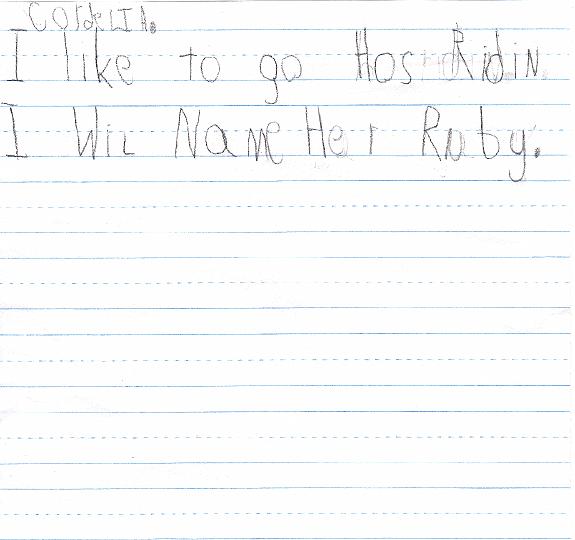 CordeLIA.
I like to go Hos Ridin.
I Wil Name Her Ruby.